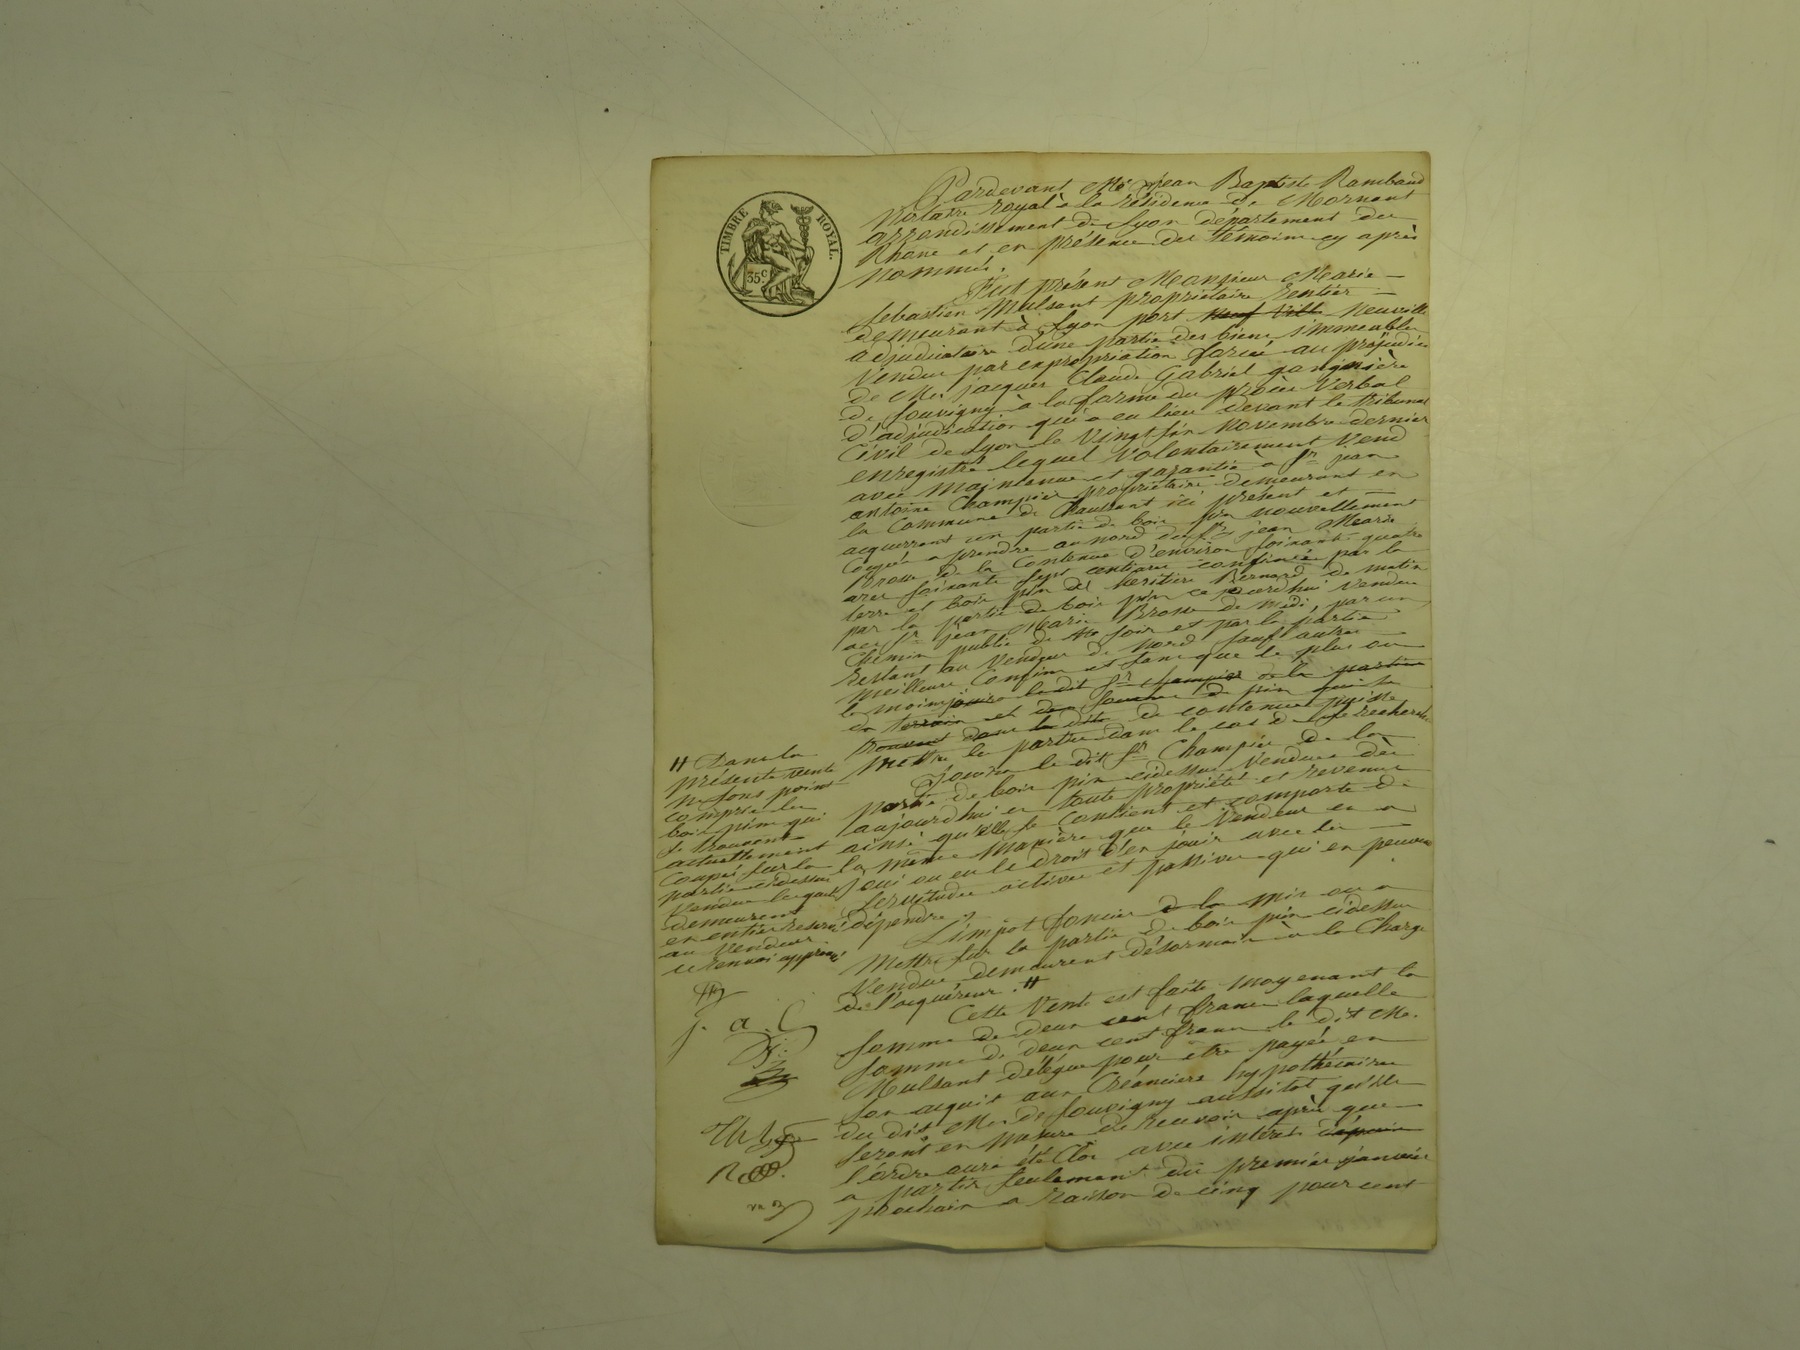 TIMBRE ROYAL.
35c
Pardevant Me jean Baptiste Rambaud
Notaire Royal à la résidence de Mornant
arrondissement de Lyon département du
Rhône et en présence des témoins cy après
nommés.
Fut présent Monsieur Marie
Sebastien Mulsant propriétaire Rentier
demeurant à Lyon port neuf ville Neuville
adjudicataire d'une partie des biens immeubles
vendus par expropriation forcée au préjudice
de Mr jacques Claude Gabriel
de Souvigny à la forme du procès verbal
d'adjudication qui a eu lieu devant le tribunal
Civil de Lyon le Vingt six Novembre dernier
enregistré lequel Volontairement Vend
avec maintenue et garantie à Sr jean
antoine Champier propriétaire demeurant en
la Commune de Chaussant ici présent et
acquerrant un partie de bois pin nouvellement
Coupée a prendre au nord du Sr jean Marie
Brosse de la Contenue d'environ soixante quatre
ares soixante sept centiares confinée par la
terre et bois pin des héritiers Bernard de matin
par la partie de bois pin ce jourdhui vendue
au Sr jean Marie Brosse de midi, par un
Chemin public de soir et par la partie
Restant au Vendeur de Nord sauf autres
meilleurs Confins et sans que le plus ou
le moins jouira le dit Sr Champier de la partie
de terrain et des de pin qui se
trouvent dans la dite de contenue puisse
mettre les parties dans le cas de se rechercher
Jouira le dit Sr Champier de la
partie de bois pin cidessus Vendue dès
aujourdhui en toute propriété et revenus
ainsi qu'elle se Contient et comporte de
la même manière que le Vendeur en a
joui ou eu le droit d'en jouir avec les
servitudes actives et passives qui en peuvent
dépendre.
L'impot foncier de la mis ou a
Mettre sur la partie de bois pin cidessus
Vendue demeurent désormais à la Charge
de l'acquéreur. #
Cette Vente est faite moyenant la
somme de deux cent francs laquelle
somme de deux cent francs le dit Mr.
Mulsant délègue pour etre payée en
son acquit aux Créanciers hypothécaires
du dit Mr. de Souvigny aussitot qu'ils
seront en mesure de recevoir après que
l'ordre aura été Clos avec intérêts depuis
a partir seulement du premier janvier
prochain a raison de cinq pour cent
# Dans la
présente vente
ne sons point
compris les
bois pins qui
se trouvent
actuellement
Coupés sur la
partie cidessus
Vendue lesquels
demeurent
en entier reservés
au Vendeur
ce renvoi approuvé
j. a. C